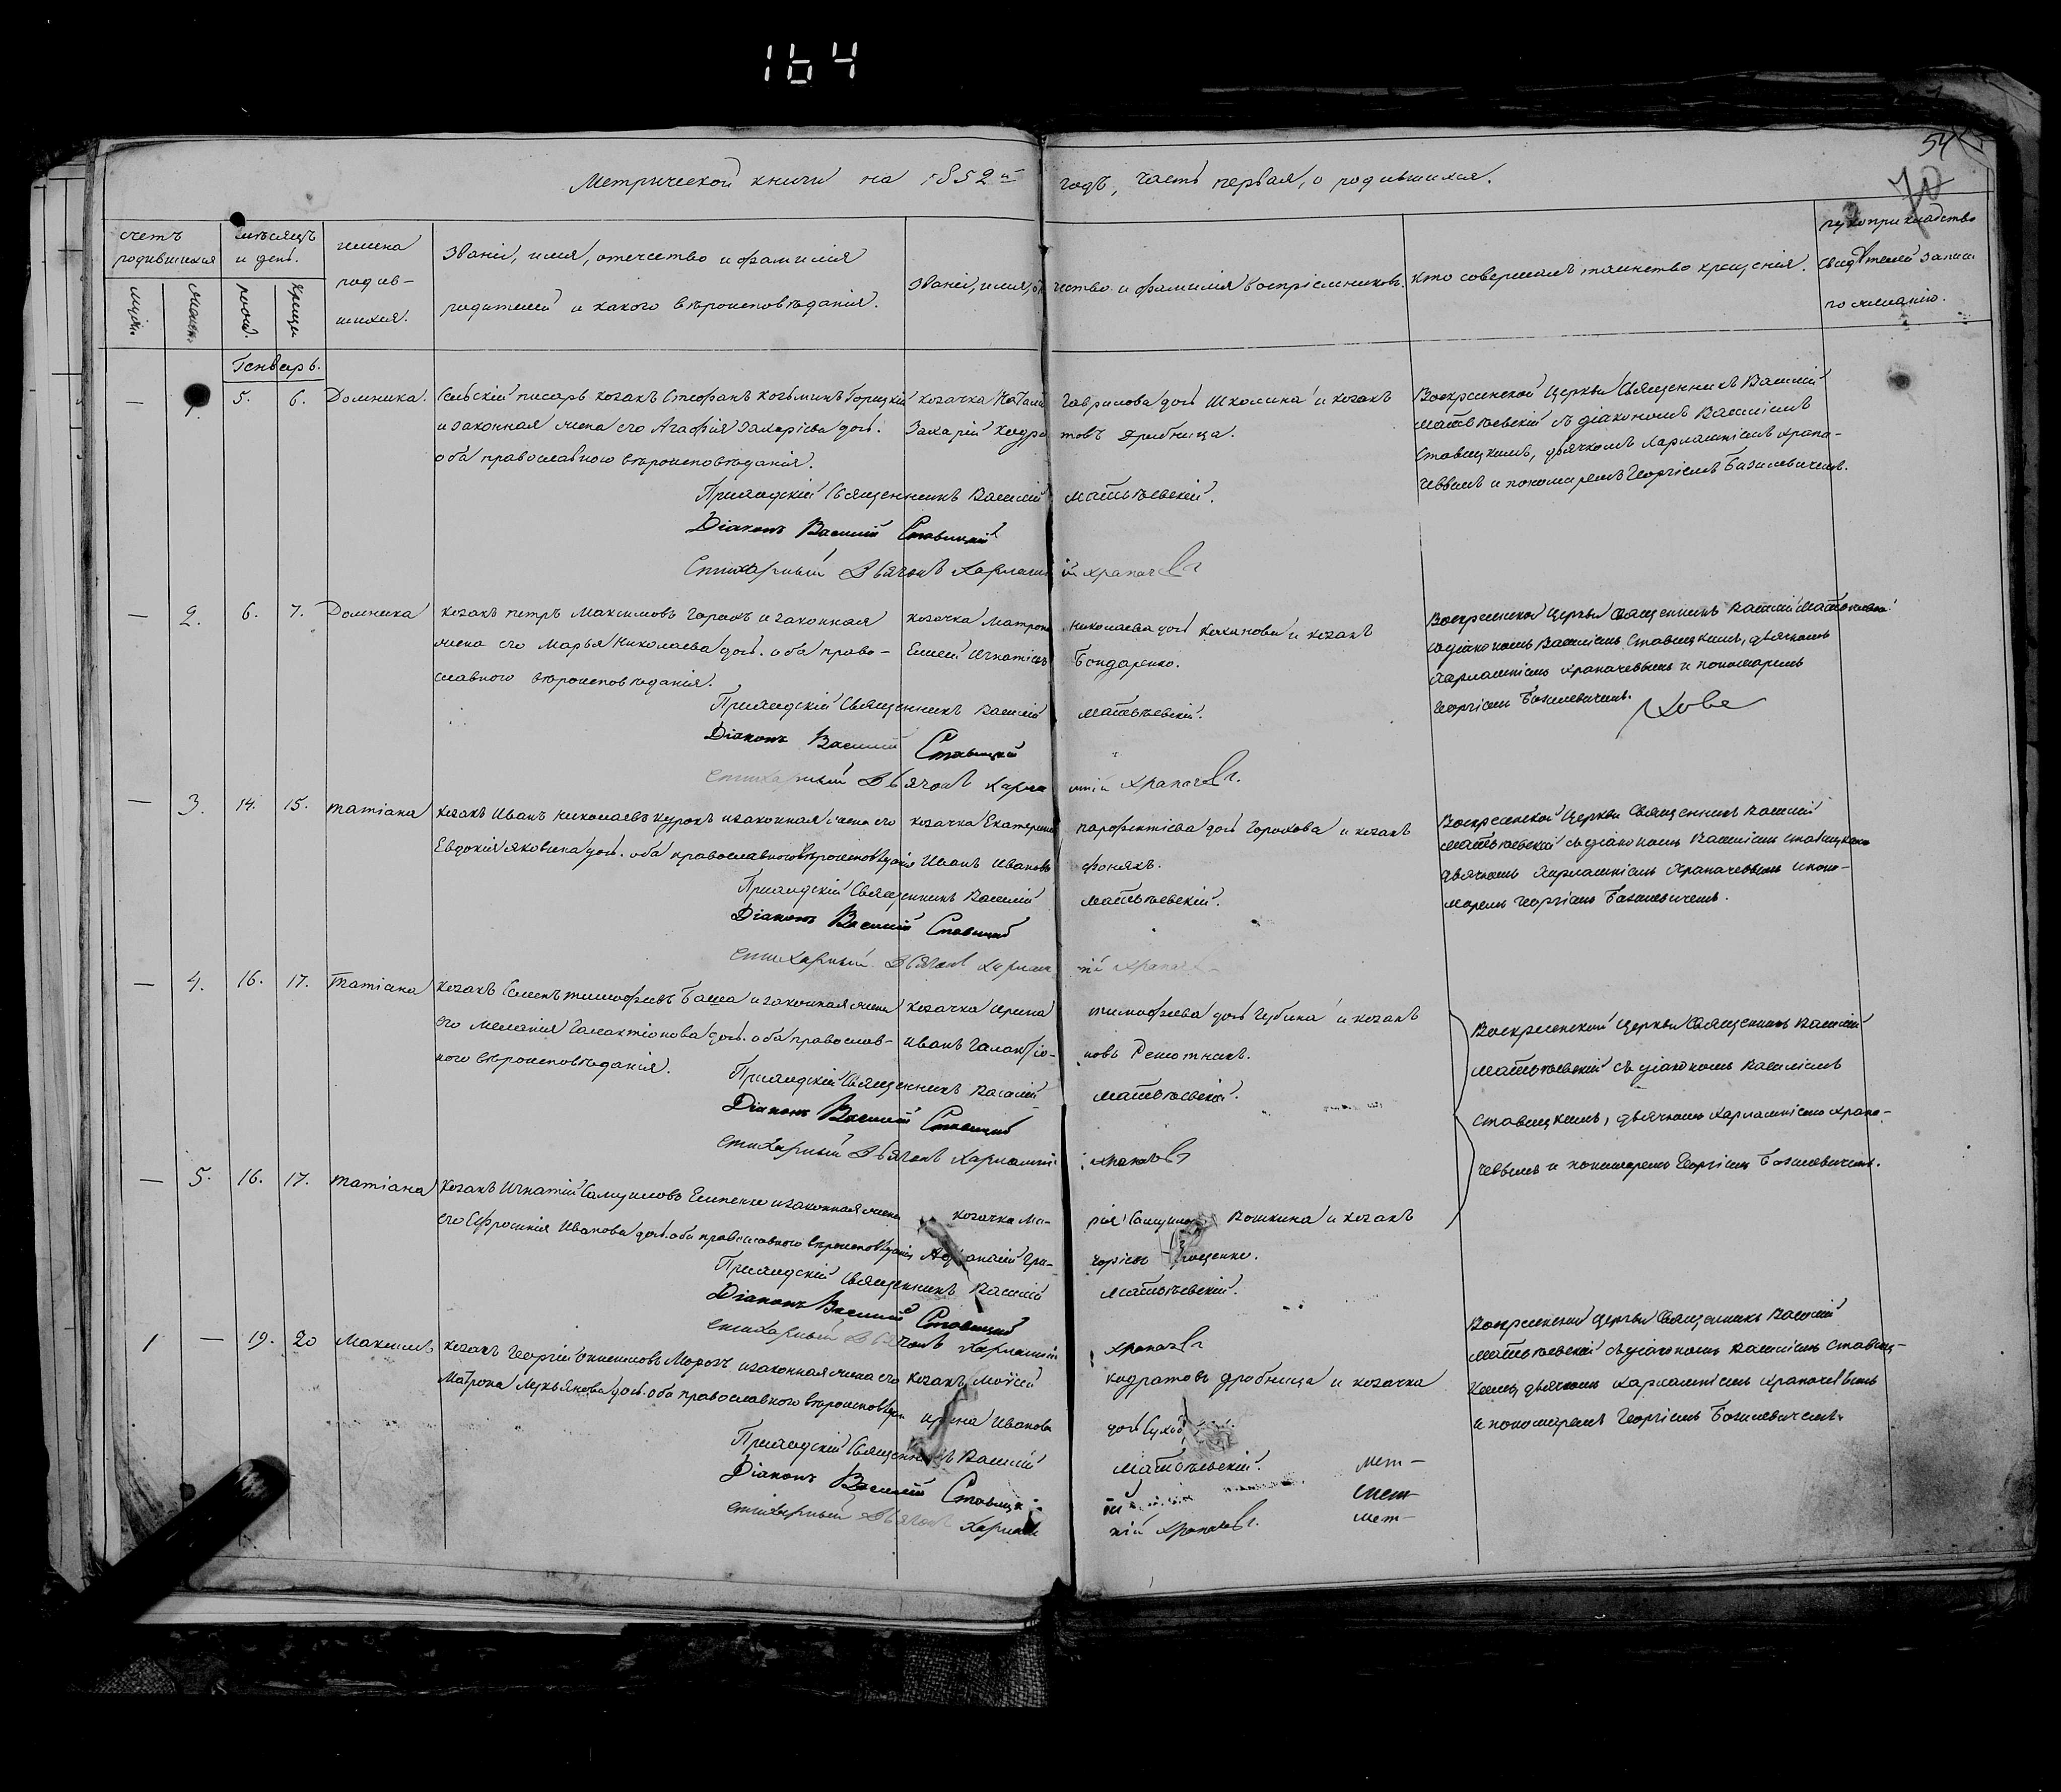 164
54
70
Метрической книги на 1852й годъ, часть первая, о родившихся.
счетъ родившихся
мѣсяцъ и день.
имена родившихся.
званіе, имя, отечество и фамилія родителей и какого вѣроисповѣданія.
званіе, имя, отечество и фамилія воспріемниковъ.
кто совершалъ таинство крещенія.
рукоприкладство свидѣтелей записи по желанію.
мужск. женск. рожд. крещ.
Генварь.
— 5. 6. Домника.
Сельскій писарь козакъ Стефанъ Козьминъ Горицкій
и законная жена его Агафія Захаріева дочь.
оба православного вѣроисповѣданія.
козачка Наталія Гаврилова дочь Школина и козакъ
Захарій Кодратовъ Дробница.
Воскресенской Церкви Священникъ Василій
Матвѣевскій съ діакономъ Василіемъ
Ставицкимъ, дьячкомъ Харлампіемъ Храпа-
чевымъ и пономаремъ Георгіемъ Базилевичемъ.
Приходскій Священникъ Василій Матвѣевскій.
Діаконъ Василій Ставицкій
Стихарный Дьячокъ Харлампій Храпачевъ
— 2. 6. 7. Домника
козакъ Петръ Максимовъ и законная
жена его Марья Николаева дочь. оба право-
славного вѣроисповѣданія.
козачка Матрона Николаева дочь и козакъ
Игнатіевъ Бондаренко.
Воскресенской Церкви Священникъ Василій Матвѣевскій
съ діакономъ Василіемъ Ставицкимъ, дьячкомъ
Харлампіемъ Храпачевымъ и пономаремъ
Георгіемъ Базилевичемъ.
Приходскій Священникъ Василій Матвѣевскій.
Діаконъ Василій Ставицкій
Стихарный Дьячокъ Харлампій Храпачевъ.
— 3. 14. 15. Татіана
козакъ Иванъ Николаевъ и законная жена его
Евдокія Яковлева дочь. оба православного вѣроисповѣданія
козачка Екатерина Парфентіева дочь Горохова и козакъ
Иванъ Ивановъ
Воскресенской Церкви Священникъ Василій
Матвѣевскій съ діакономъ Василіемъ Ставицкимъ
дьячкомъ Харлампіемъ Храпачевымъ и поно-
маремъ Георгіемъ Базилевичемъ.
Приходскій Священникъ Василій Матвѣевскій.
Діаконъ Василій Ставицкій
Стихарный Дьячокъ Харлампій Храпачевъ
— 4. 16. 17. Татіана
козакъ Семенъ Тимофѣевъ и законная жена
его Меланія Галактіонова дочь. оба православ-
ного вѣроисповѣданія.
козачка Ирина Тимофѣева дочь Губина и козакъ
Иванъ Галактіо-новъ Решотникъ.
Воскресенской Церкви Священникъ Василій
Матвѣевскій съ діакономъ Василіемъ
Ставицкимъ, дьячкомъ Харлампіемъ Храпа-
чевымъ и пономаремъ Георгіемъ Базилевичемъ.
Приходскій Священникъ Василій Матвѣевскій.
Діаконъ Василій Ставицкій
Стихарный Дьячокъ Харлампій Храпачевъ
— 5. 16. 17. Татіана
козакъ Игнатій Самуиловъ и законная жена
его Ефросинія Иванова дочь. оба православного вѣроисповѣданія
козачка Марія и козакъ
Гри-горіевъ
Приходскій Священникъ Василій Матвѣевскій.
Діаконъ Василій Ставицкій
Стихарный Дьячокъ Харлампій Храпачевъ
1 — 19. 20 Максимъ
козакъ Георгій Морозъ и законная жена его
Матрона Лукьянова дочь. оба православного вѣроисповѣданія
козакъ Моѵсей Кодратовъ Дробница и козачка
Ирина Иванова дочь
Воскресенской Церкви Священникъ Василій
Матвѣевскій съ діакономъ Василіемъ Ставиц-
кимъ дьячкомъ Харлампіемъ Храпачевымъ
и пономаремъ Георгіемъ Базилевичемъ.
Приходскій Священникъ Василій Матвѣевскій.
Діаконъ Василій Ставицкій
Стихарный Дьячокъ Харлампій Храпачевъ.